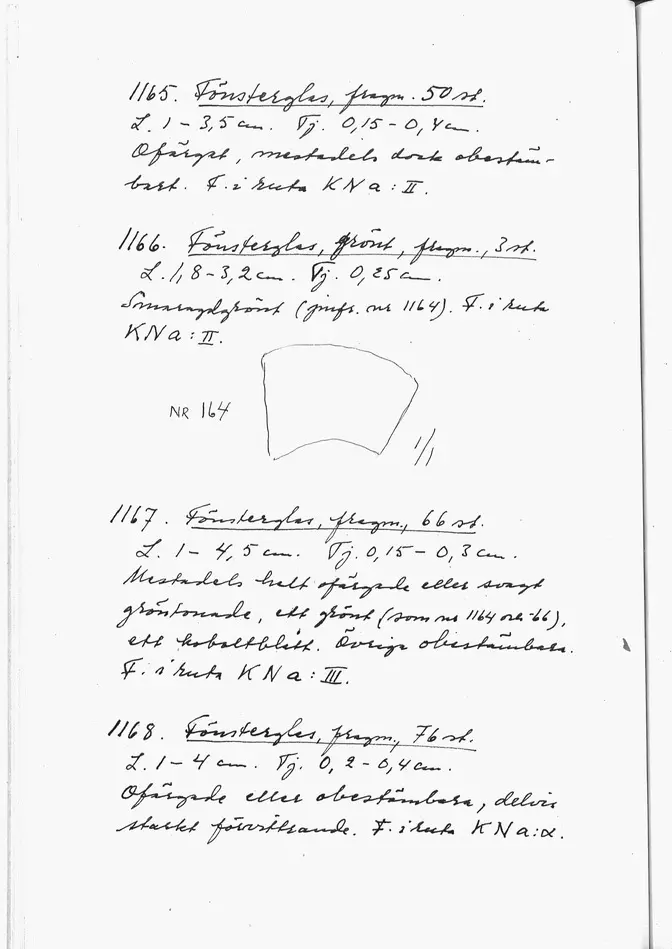 1165. Fönsterglas, fragm. 50 st.
L. 1 - 3,5 cm. Tj. 0,15 - 0,4 cm.
Ofärgat, mestadels dock obestäm-
bart. F. i ruta KNa : II.
1166. Fönsterglas, grönt, fragm., 3 st.
L. 1,8 - 3,2 cm. Tj. 0,25 cm.
Smaragdgrönt (jmfr. nr 1164). F. i ruta
KNa : II.
NR 164
1/1
1167. Fönsterglas, fragm., 66 st.
L. 1 - 4,5 cm. Tj. 0,15 - 0,3 cm.
Mestadels helt ofärgade eller svagt
gröntonade, ett grönt (som nr 1164 och -66),
ett koboltblått. Övriga obestämbara.
F. i ruta KNa : III.
1168. Fönsterglas, fragm., 76 st.
L. 1 - 4 cm. Tj. 0,2 - 0,4 cm.
Ofärgade eller obestämbara, delvis
starkt förvittrande. F. i ruta KNa : α.